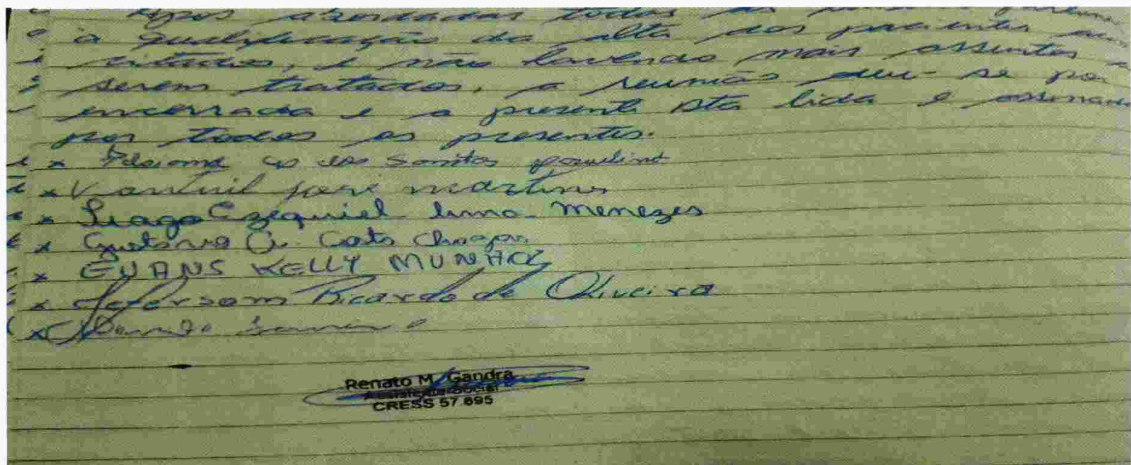 após abordadas todos os
a qualificação da alta dos pacientes
citados, e não havendo mais assuntos a
serem tratados, a reunião deu-se por
encerrada e a presente Ata lida e assinada
por todos os presentes.
x dos Santos
x Vantuil jose martins
x Tiago Ezequiel Lima Menezes
x Gustavo
x EVANS KELLY MUNHOZ
x Jeferson Ricardo de Oliveira
x
Renato M. Gandra
Assistente Social
CRESS 57 695